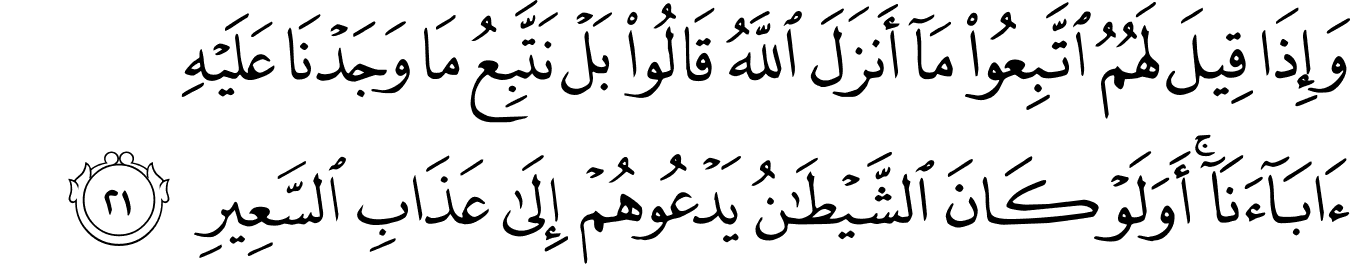 وَإِذَا قِيلَ لَهُمُ ٱتَّبِعُوا۟ مَآ أَنزَلَ ٱللَّهُ قَالُوا۟ بَلْ نَتَّبِعُ مَا وَجَدْنَا عَلَيْهِ
ءَابَآءَنَآ ۚ أَوَلَوْ كَانَ ٱلشَّيْطَـٰنُ يَدْعُوهُمْ إِلَىٰ عَذَابِ ٱلسَّعِيرِ ٢١